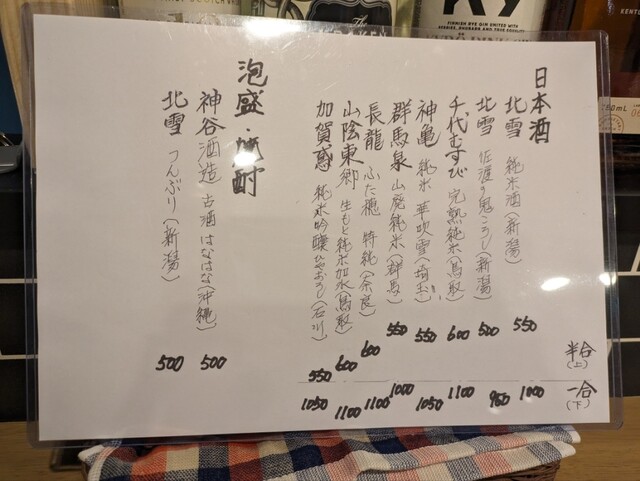 日本酒
北雪 純米酒(新潟) 550 1000
北雪 佐渡の鬼ころし(新潟) 500 900
千代むすび 完熟純米(鳥取) 600 1100
神亀 純米 華吹雪(埼玉) 550 1050
群馬泉 山廃純米(群馬) 550 1000
長龍 ふた穂 特純(奈良) 600 1100
山陰東郷 生もと純米加水(鳥取) 600 1100
加賀鳶 純米吟醸ひやおろし(石川) 550 1050
半合(上)
一合(下)
泡盛・焼酎
神谷酒造 古酒 はなはな(沖縄) 500
北雪 つんぶり(新潟) 500
FINNISH RYE GIN UNITED WITH